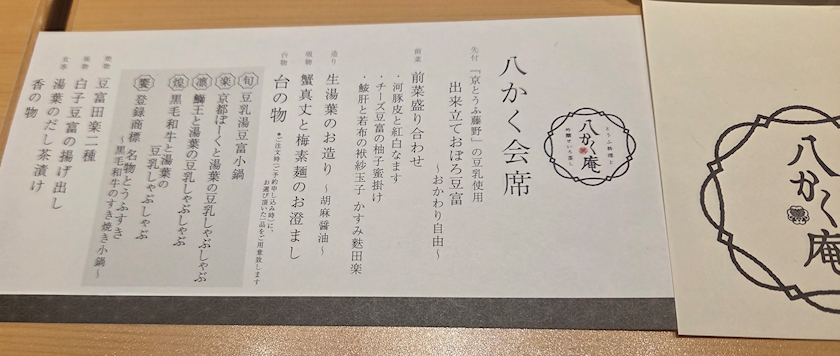 とうふ料理と
吟醸せいろ蒸し
八かく庵
八かく会席
先付 『京とうふ藤野』の豆乳使用
出来立ておぼろ豆富
～おかわり自由～
前菜 前菜盛り合わせ
・河豚皮と紅白なます
・チーズ豆富の柚子蜜掛け
・鮟肝と若布の袱紗玉子 かすみ麩田楽
造り 生湯葉のお造り ～胡麻醤油～
吸物 蟹真丈と梅素麺のお澄まし
台物 台の物
●ご注文時(ご予約申し込み時)に、
お選び頂いた一品をご用意致します
旬 豆乳湯豆富小鍋
楽 京都ぽーくと湯葉の豆乳しゃぶしゃぶ
凛 鰤王と湯葉の豆乳しゃぶしゃぶ
煌 黒毛和牛と湯葉の
豆乳しゃぶしゃぶ
饗 登録商標 名物とうふすき
～黒毛和牛のすき焼き小鍋～
焼物 豆富田楽二種
揚物 白子豆富の揚げ出し
食事 湯葉のだし茶漬け
香の物
八かく庵